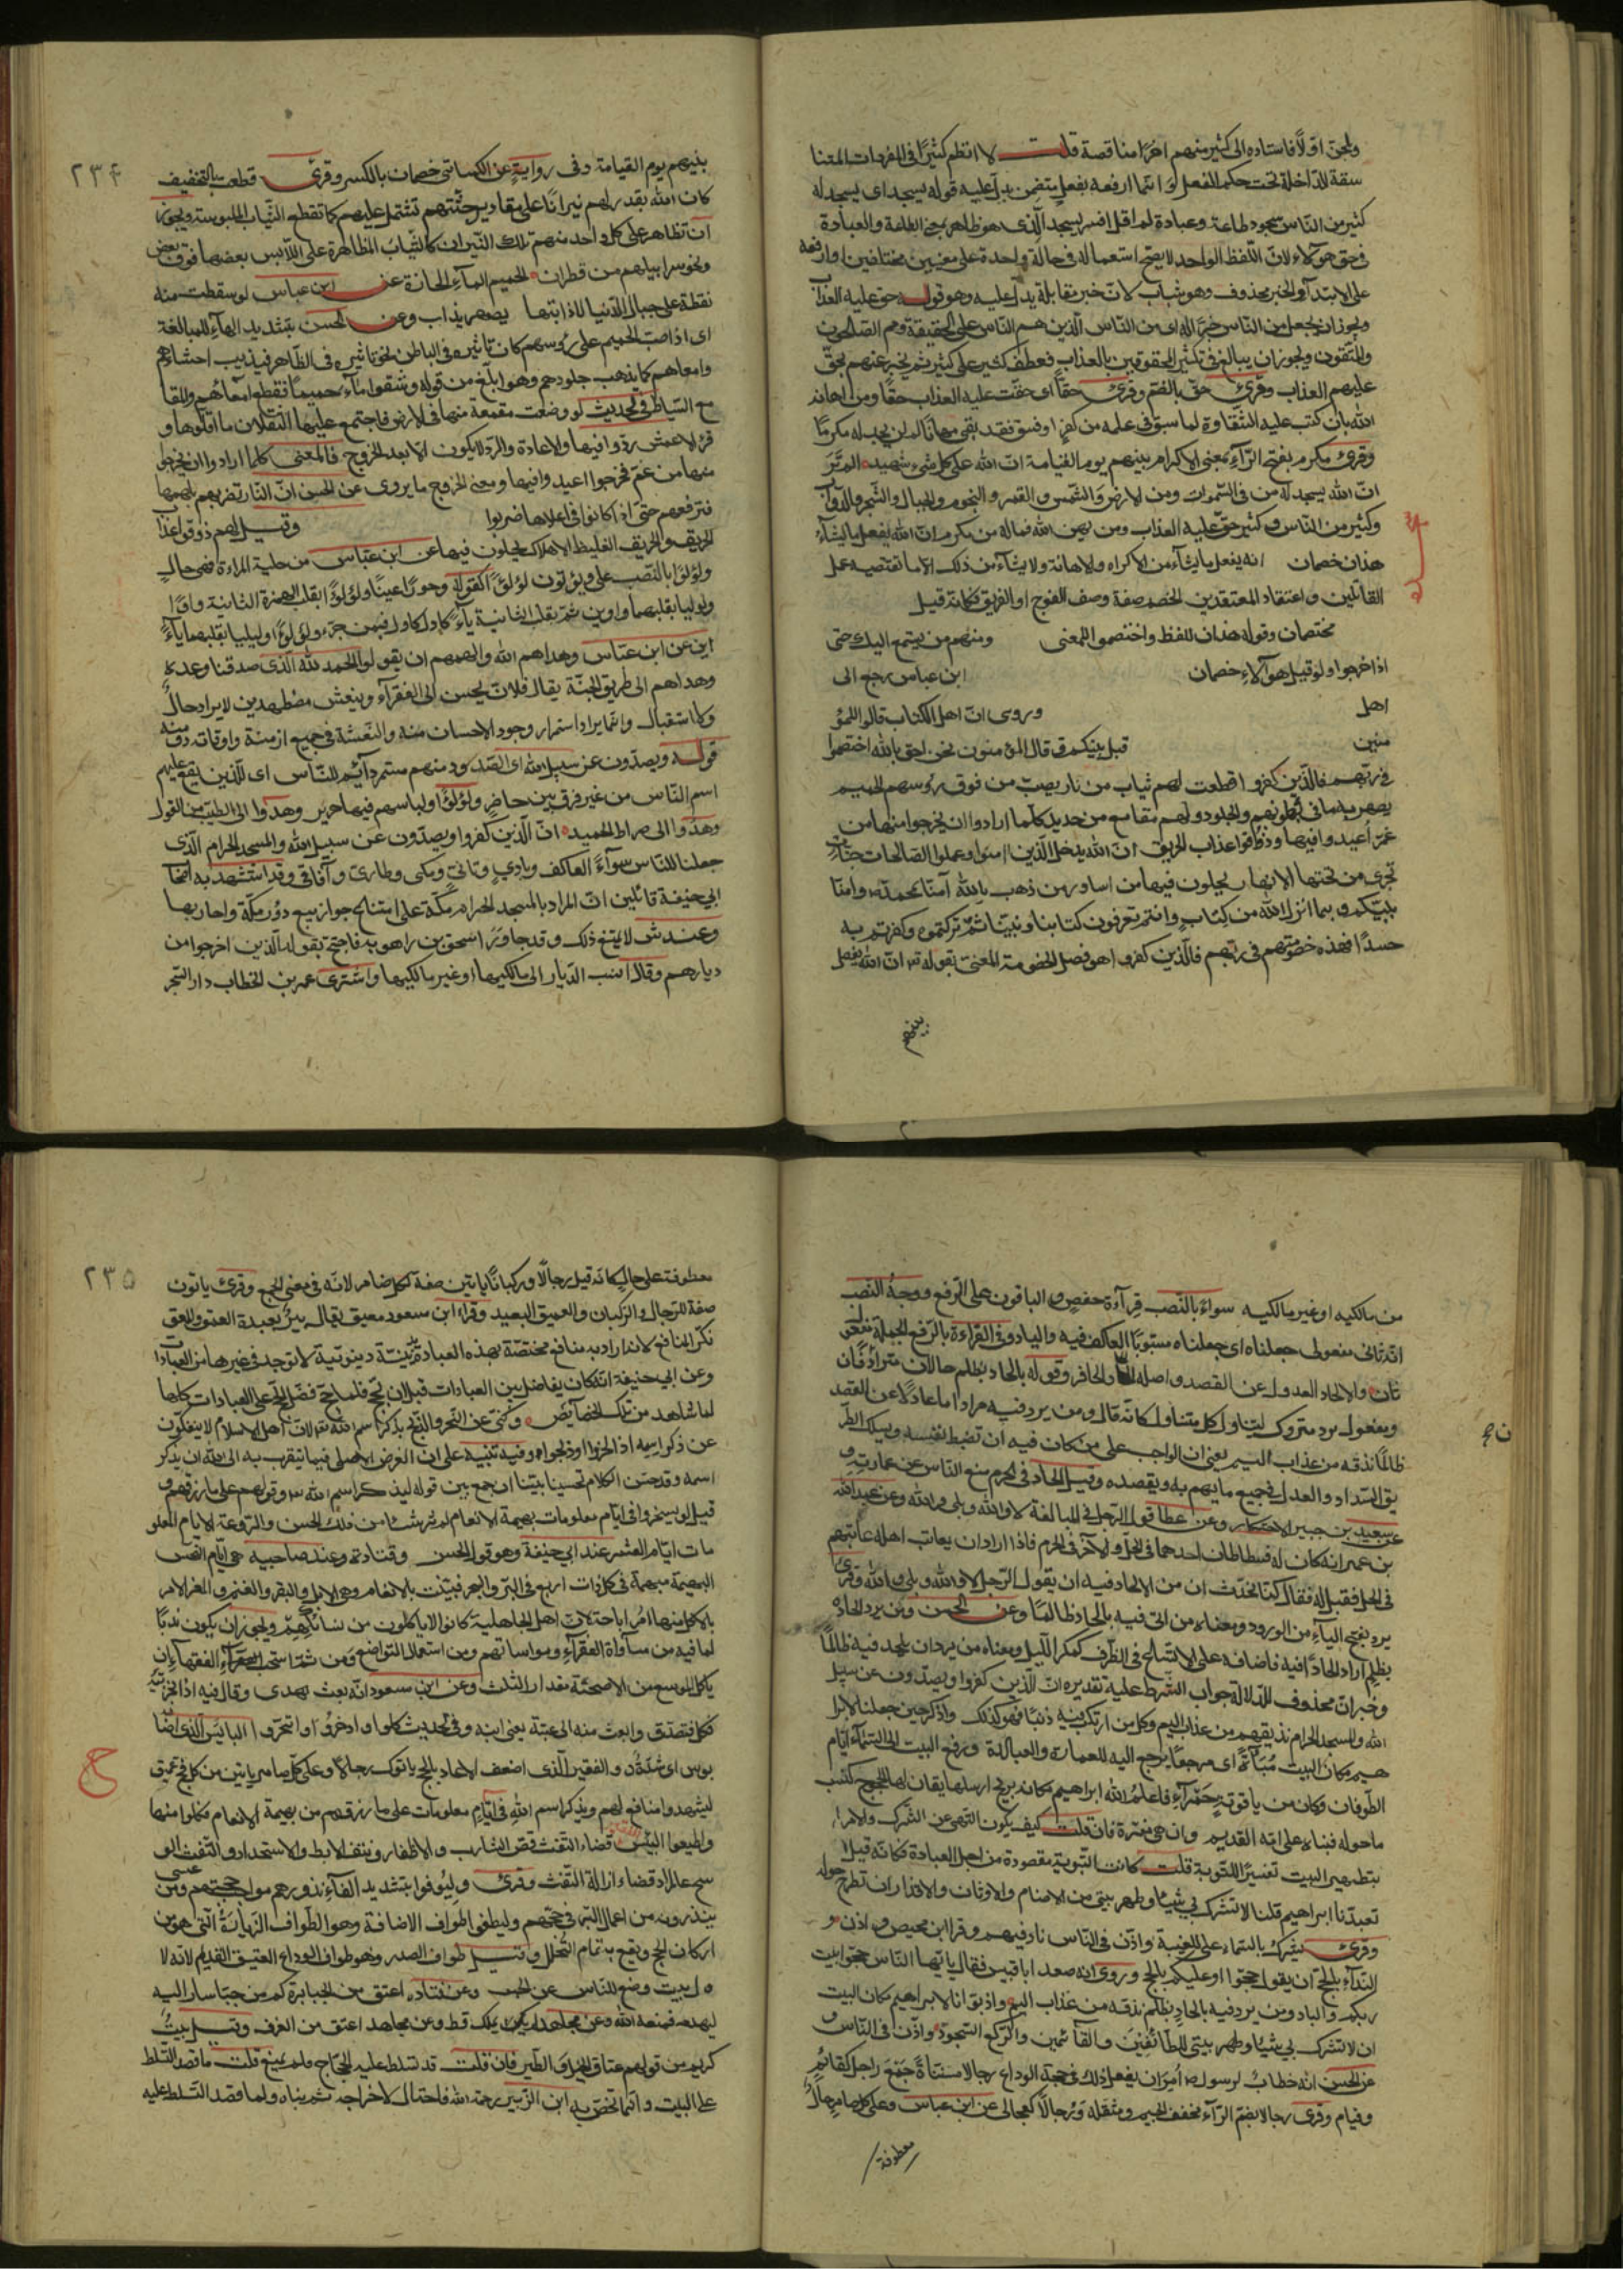 ولحق اولًا فاستاده الى كثير منهم اخرًا مناقصة قلت لا انظم كثيرًا فى المفردات المتنا
سقة الداخلة تحت حكم الفعل و انما ارفعه بفعل متضمن يدل عليه قوله يسجد اى يسجد له
كثير من الناس سجود طاعة وعبادة لم اقل افسر يسجد الذى هو ظاهر بمعنى الطاعة والعبادة
فى حق هؤلاء لان اللفظ الواحد لا يصح استعماله فى حالة واحدة على معنيين مختلفين او ارفعه
على الابتداء والخبر محذوف وهو مثاب لان خبر مقابلة يدل عليه وهو قوله حق عليه العذاب
ويجوز ان يجعل من الناس خبرًا له اى من الناس الذين هم الناس على الحقيقة وهم الصالحون
والمتقون ويجوز ان يبالغ فى تكثير المحقوقين بالعذاب فعطف كثير على كثير ثم يخبر عنهم بحق
عليهم العذاب وقرئ حق بالضم وقرئ حقًا اى حقت عليه العذاب حقًا ومن اهانه
الله بان كتب عليه الشقاوة لما سبق فى علمه من كفر او فسق فقد بقى مهانًا لمن لن يجد له مكرمًا
وقرئ مكرم بفتح الراء بمعنى الاكرام بينهم يوم القيامة ان الله على كل شئ شهيد الم تر
ان الله يسجد له من فى السموات ومن الارض والشمس والقمر والنجوم والجبال والشجر والدواب
وكثير من الناس وكثير حق عليه العذاب ومن يهن الله فما له من مكرم ان الله يفعل ما يشاء
هذان خصمان انه يفعل ما يشاء من الاكراه والاهانة ولا يشاء من ذلك الا ما تقتضيه عمل
القائلين واعتقاد المعتقدين الخصم صفة وصف الفوج او الفريق فكانه قيل
مختصمان وقوله هذان للفظ واختصموا للمعنى ومنهم من يستمع اليك حتى
اذا خرجوا ولو قيل هؤلاء خصمان ابن عباس رجع الى
اهل وروى ان اهل الكتاب قالوا للمؤ
منين قبل نبيكم ف قال المؤمنون نحن احق بالله اختصموا
فى ربهم فالذين كفروا قطعت لهم ثياب من نار يصب من فوق رؤسهم الحميم
يصهر به ما فى بطونهم والجلود ولهم مقامع من حديد كلما ارادوا ان يخرجوا منها من
غم اعيدوا فيها وذوقوا عذاب الحريق ان الله يدخل الذين امنوا وعملوا الصالحات جنات
تجرى من تحتها الانهار يحلون فيها من اساور من ذهب بالله آمنا بمحمد وامنا
بنبيكم وبما انزل الله من كتاب وانتم تعرفون كتابنا ونبينا ثم تركتموه وكفرتم به
حسدًا فهذه خصومتهم فى ربهم فالذين كفروا هو فصل الخصومة المعنى بقوله ان الله يفصل
بينهم
٢٣٤
بينهم يوم القيامة وفى رواية عن الكسائى خصمان بالكسر وقرئ قطعت بالتخفيف
كان الله يقدر لهم نيرانًا على مقادير جثتهم تشتمل عليهم كما تقطع الثياب الملبوسة ويجوز
ان تظاهر على كل واحد منهم تلك النيران كالثياب المظاهرة على اللابس بعضها فوق بعض
ونحو سرابيلهم من قطران الحميم الماء الحار عن ابن عباس لو سقطت منه
نقطة على جبال الدنيا لاذابتها يصهر يذاب وعن الحسن بتشديد الهاء للمبالغة
اى اذا صب الحميم على رؤسهم كان تاثيره فى الباطن نحو تاثيره فى الظاهر فيذيب احشاءهم
وامعاهم كما يذهب جلودهم وهو ابلغ من قوله وسقوا ماء حميمًا فقطع امعاءهم والمقا
مع السياط فى الحديث لو وضعت مقمعة منها فى الارض فاجتمع عليها الثقلان ما اقلوها و
قرا الاعمش ردوا فيها والاعادة والرد لا يكون الا بعد الخروج فالمعنى كلما ارادوا ان يخرجوا
منها من غم فخرجوا اعيدوا فيها ومعنى الخروج ما يروى عن الحسن ان النار تضربهم بلهبها
فترفعهم حتى اذا كانوا فى اعلاها ضربوا وقيل لهم ذوقوا عذاب
الحريق والحريق الغليظ الاهلاك يحلون فيها عن ابن عباس من حلية المراة فهى حال
ولؤلؤا بالنصب على ويؤتون لؤلؤًا كقوله وحورًا عينًا ولؤلؤًا بقلب الهمزة الثانية واوًا
ولوليا بقلبهما واوين ثم بقلب الثانية ياء كادل كادلو فيمن جر ولؤلؤ وليليا بقلبهما ياء
ين عن ابن عباس وهداهم الله والهمهم ان يقولوا الحمد لله الذى صدقنا وعده
وهداهم الى طريق الجنة يقال فلان يحسن الى الفقراء وينعش مضطهدين لا يراد حال
ولا استقبال وانما يراد استمرار وجود الاحسان منه والنعشة فى جميع ازمنة واوقاته ومنه
قوله ويصدون عن سبيل الله اى الصدود منهم مستمر دائم للناس اى الذين يقع عليهم
اسم الناس من غير فرق بين حاضر ولؤلؤًا ولباسهم فيها حرير وهدوا الى الطيب من القول
وهدوا الى صراط الحميد ان الذين كفروا ويصدون عن سبيل الله والمسجد الحرام الذى
جعلنا للناس سواء العاكف وباد وتانى ومكى وطارئ وآفاقى وقد استشهد به اصحاب
ابى حنيفة قائلين ان المراد بالمسجد الحرام مكة على امتناع جواز بيع دور مكة واجارتها
وعند ش لا يمتنع ذلك وقد جاور اسحق بن راهويه فاحتج بقوله الذين اخرجوا من
ديارهم وقال انسب الديار الى مالكيها او غير مالكيها واشترى عمر بن الخطاب دار السجن
من مالكيه او غير مالكيه سواء بالنصب قراءة حفص والباقون على الرفع ووجه النصب
انه ثانى مفعولى جعلناه اى جعلناه مستويًا العاكف فيه والباد وفى القراءة بالرفع الجملة مفعول
ثان والالحاد العدول عن القصد واصله الحاد الحافر وقوله بالحاد بظلم حالان مترادفان
ومفعول يرد متروك ليتناول كل متناول كانه قال ومن يرد فيه مرادا ما عادلًا عن القصد
ظالمًا نذقه من عذاب اليم يعنى ان الواجب على من كان فيه ان يضبط نفسه ويسلك طر
يق السداد والعدل فى جميع ما يهم به ويقصده وقيل الحاد فى الحرم منع الناس عن عمارته و
عن سعيد بن جبير الاحتكار وعن عطا قول الرجل فى المبالغة لا والله وبلى والله وعن عبد الله
بن عمر انه كان له فسطاطان احدهما فى الحل والآخر فى الحرم فاذا اراد ان يعاتب اهله عاتبهم
فى الحل فقيل له فقال كنا نحدث ان من الالحاد فيه ان يقول الرجل لا والله وبلى والله وقرئ
يرد بفتح الياء من الورود ومعناه من اتى فيه بالحاد ظالمًا وعن الحسن ومن يرد الحاده
بظلم اراد الحادًا فيه فاضافه على الاتساع فى الظرف كمكر الليل ومعناه من يرد ان يلحد فيه ظالمًا
وخبر ان محذوف لدلالة جواب الشرط عليه تقديره ان الذين كفروا ويصدون عن سبيل
الله والمسجد الحرام نذيقهم من عذاب اليم وكل من ارتكب فيه ذنبًا فهو كذلك واذكر حين جعلنا لابرا
هيم مكان البيت مباءة اى مرجعًا يرجع اليه للعمارة والعبادة ورفع البيت الى السماء ايام
الطوفان وكان من ياقوتة حمراء فاعلم الله ابراهيم مكانه بريح ارسلها يقال لها الخجوج كنست
ما حوله فبناه على اسه القديم وان هى مفسرة فان قلت كيف يكون النهى عن الشرك والامر
بتطهير البيت تفسيرًا للتبوئة قلت كانت التبوئة مقصودة من اجل العبادة فكانه قيل
تعبدنا ابراهيم قلنا لا تشرك بى شيئا وطهر بيتى من الاصنام والاوثان والاقذار ان تطرح حوله
وقرئ يشرك بالياء على الغيبة واذن فى الناس ناد فيهم وقرا ابن محيصن واذن و
النداء بالحج ان يقول حجوا او عليكم بالحج وروى انه صعد ابا قبيس فقال يا ايها الناس حجوا بيت
ربكم والباد ومن يرد فيه بالحاد بظلم نذقه من عذاب اليم واذ بوانا لابراهيم مكان البيت
ان لا تشرك بى شيئا وطهر بيتى للطائفين والقائمين والركع السجود واذن فى الناس
عن الحسن انه خطاب لرسول امر ان يفعل ذلك فى حجة الوداع رجالا مشاة جمع راجل كقائم
وقيام وقرئ رجالا بضم الراء مخفف الجيم ومثقله ورجالًا كعجالى عن ابن عباس وعلى كل ضامر حال
معطوفة
٢٣٥
معطوفة على حال كانه قيل رجالًا وركبانًا ياتين صفة لكل ضامر لانه فى معنى الجمع وقرئ ياتون
صفة للرجال والركبان والعميق البعيد وقرا ابن مسعود معيق يقال بئر بعيدة العمق والمعق
نكر المنافع لانه اراد به منافع مختصة بهذه العبادة دينية دنيوتية لا توجد فى غيرها من العبادات
وعن ابى حنيفة انه كان يفاضل بين العبادات قبل ان يحج فلما حج فضل الحج على العبادات كلها
لما شاهد من تلك الخصائص وكنى عن النحر والذبح بذكر اسم الله لان اهل الاسلام لا ينفكون
عن ذكر اسمه اذا نحروا وذبحوا وفيه تنبيه على ان الغرض الاصلى فيما يتقرب به الى الله ان يذكر
اسمه وقد حسن الكلام تحسينا بينا ان جمع بين قوله ليذكر اسم الله وقوله على ما رزقهم و
قيل لو ينحروا فى ايام معلومات بهيمة الانعام لم تر شئا من ذلك الحسن والروعة الايام المعلو
مات ايام العشر عند ابى حنيفة وهو قول الحسن وقتادة وعند صاحبيه هى ايام النحر
البهيمة مبهمة فى كل ذات اربع فى البر والبحر فبينت بالانعام وهى الابل والبقر والغنم والمعز الامر
بالاكل منها امر اباحة لان اهل الجاهلية كانوا لا ياكلون من نسائكهم ويجوز ان يكون ندبًا
لما فيه من مساواة الفقراء ومواساتهم ومن استعمال التواضع ومن ثم استحب الفقهاء ان
ياكل الموسع من الاضحية مقدار الثلث وعن ابن مسعود انه بعث بهدى وقال فيه اذا نحرته
فكل وتصدق وابعث منه الى عتبة يعنى ابنه وفى الحديث كلوا وادخروا واتجروا البائس الذى اصابه
بوس اى شدة والفقير الذى اضعف الاعاد بالحج ياتوك رجالًا وعلى كل ضامر ياتين من كل فج عميق
ليشهدوا منافع لهم ويذكروا اسم الله فى ايام معلومات على ما رزقهم من بهيمة الانعام فكلوا منها
واطعموا البائس قضاء التفث قص الشارب والاظفار ونتف الابط والاستحداد والتفث الو
سخ فالمراد قضاء ازالة التفث وقرئ وليوفوا بتشديد الفاء نذورهم مواجب حجهم وما عسى
ينذرون من اعمال البر فى حجهم وليطوفوا طواف الافاضة وهو طواف الزيارة التى هو من
اركان الحج ويقع به تمام التحلل وقيل طواف الصدر وهو طواف الوداع العتيق القديم لانه ا
ول بيت وضع للناس عن الحسن وعن قتادة اعتق من الجبابرة كم من جبار سار اليه
ليهدمه فمنعه الله وعن مجاهد لم يملك قط وعن مجاهد اعتق من الغرق وقيل بيت
كريم من قولهم عتاق الخيل والطير فان قلت قد تسلط عليه الحجاج فلم يمنع قلت ما قصد التسلط
على البيت وانما تحصن به ابن الزبير رحمه الله فاحتال لاخراجه ثم بناه ولما قصد التسلط عليه